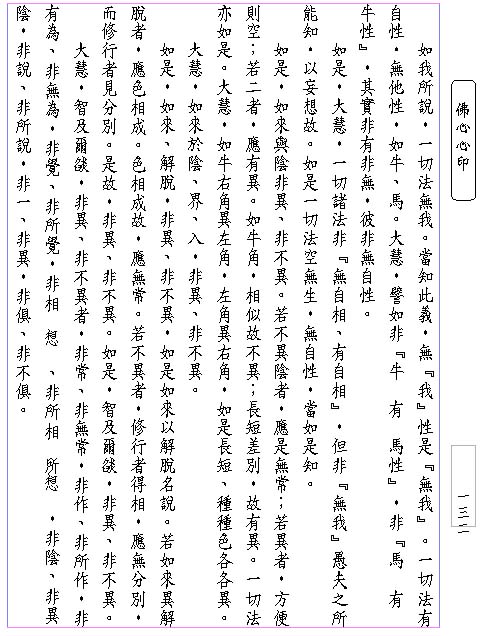 佛心心印
一三二
如我所說，一切法無我。當知此義，無『我』性是『無我』。一切法有
自性，無他性，如牛、馬。大慧，譬如非『牛　有　馬性』，非『馬　有
牛性』，其實非有非無，彼非無自性。
如是，大慧，一切諸法非『無自相、有自相』，但非『無我』愚夫之所
能知，以妄想故。如是一切法空無生，無自性，當如是知。
如是，如來與陰非異、非不異。若不異陰者，應是無常；若異者，方便
則空；若二者，應有異。如牛角，相似故不異；長短差別，故有異。一切法
亦如是。大慧，如牛右角異左角，左角異右角，如是長短、種種色各各異。
大慧，如來於陰、界、入，非異、非不異。
如是，如來、解脫，非異、非不異，如是如來以解脫名說。若如來異解
脫者，應色相成。色相成故，應無常。若不異者，修行者得相，應無分別，
而修行者見分別。是故，非異、非不異。如是，智及爾燄，非異、非不異。
大慧，智及爾燄，非異、非不異者，非常、非無常，非作、非所作，非
有為、非無為，非覺、非所覺，非相　想　、非所相　所想　，非陰、非異
陰，非說、非所說，非一、非異，非俱、非不俱。